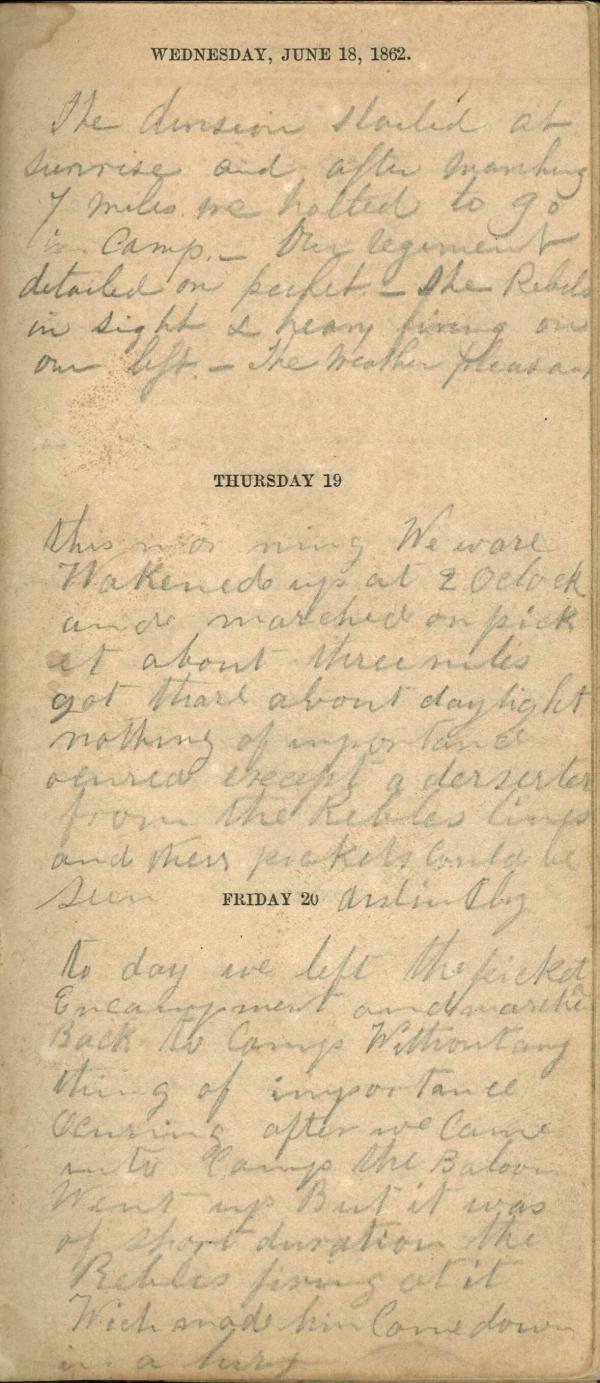 WEDNESDAY, JUNE 18, 1862.
The division started at
sunrise and after marching
7 miles we halted to go
in Camp. – Our regiment
detailed on picket. – The Rebels
in sight & heavy firing on
our left. – The Weather pleasant
THURSDAY 19
this mor ning We ware
Wakened up at 2 Oclock
and marched on pick
et about three miles
got thare about daylight
nothing of importance
ocured except a derserter
from the Rebles lines
and thers pickets Could be
Seen distinctly
FRIDAY 20
to day we left the picket
Encampment and marche
Back to Camp Without any
thing of importance
Ocuring after we Came
into Camp the Baloon
Went up But it was
of short duration the
Rebles firing at it
Wich made him Come down
in a hury